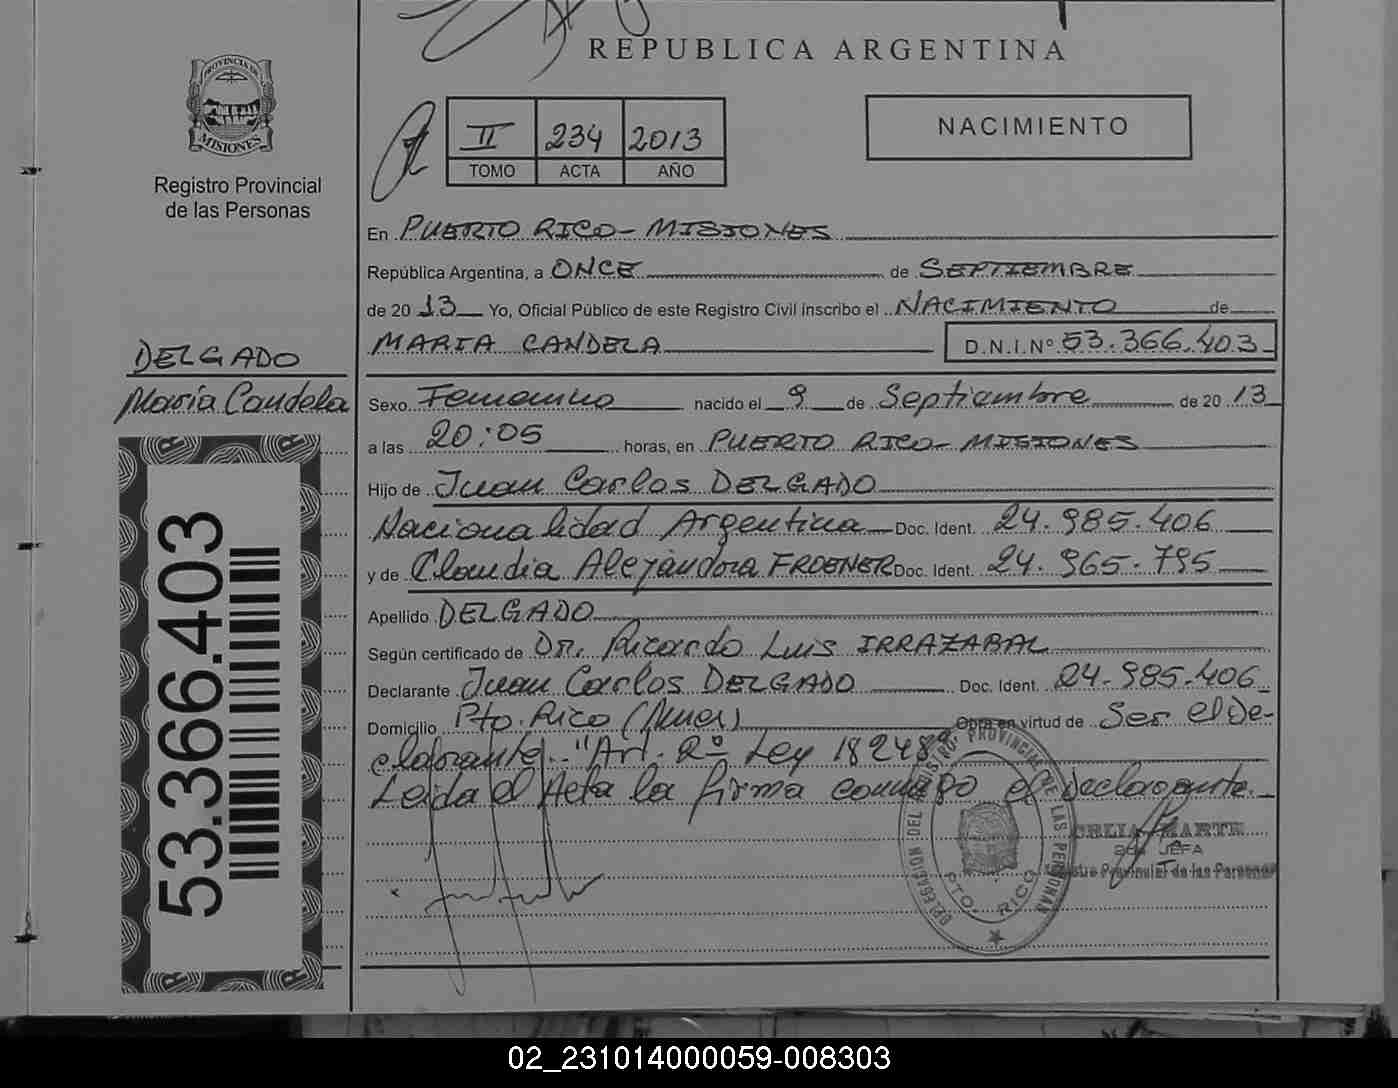 REPUBLICA ARGENTINA
PROVINCIA DE
MISIONES
Registro Provincial
de las Personas
II 234 2013
TOMO ACTA AÑO
NACIMIENTO
En PUERTO RICO - MISIONES
República Argentina, a ONCE de SEPTIEMBRE
de 20 13 Yo, Oficial Público de este Registro Civil inscribo el NACIMIENTO de
MARIA CANDELA D.N.I.Nº 53.366.403
DELGADO
María Candela
Sexo Femenino nacido el 9 de Septiembre de 20 13
a las 20:05 horas, en PUERTO RICO - MISIONES
Hijo de Juan Carlos DELGADO
Nacionalidad Argentina Doc. Ident. 24.985.406
y de Claudia Alejandra FROENER Doc. Ident. 24.965.795
Apellido DELGADO
Según certificado de Dr. Ricardo Luis IRRAZABAL
Declarante Juan Carlos DELGADO Doc. Ident. 24.985.406
Domicilio Pto. Rico (Mnes) Obra en virtud de Ser el De-
clarante. "Art. 2º Ley 18248"
Leida el Acta la firma conmigo el declarante.
53.366.403
DELEGACIÓN DEL REGISTRO PROVINCIAL DE LAS PERSONAS
PTO. RICO
JEFA
Registro Provincial de las Personas
02_231014000059-008303